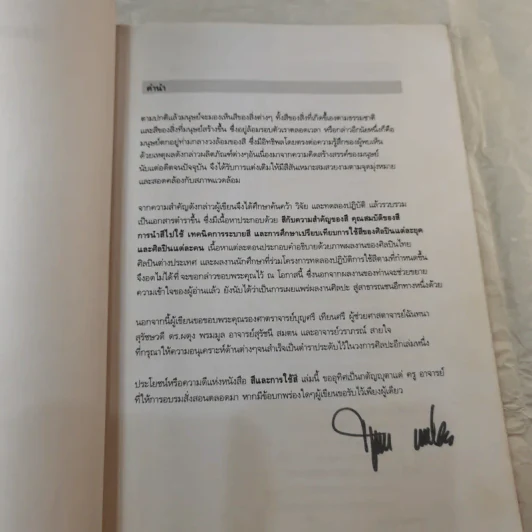 คำนำ
ตามปกติแล้วมนุษย์จะมองเห็นสีของสิ่งต่างๆ ทั้งสีของสิ่งที่เกิดขึ้นเองตามธรรมชาติ
และสีของสิ่งที่มนุษย์สร้างขึ้น ซึ่งอยู่ล้อมรอบตัวเราตลอดเวลา หรือกล่าวอีกนัยหนึ่งก็คือ
มนุษย์ตกอยู่ท่ามกลางวงล้อมของสี ซึ่งมีอิทธิพลโดยตรงต่อความรู้สึกของผู้พบเห็น
ด้วยเหตุผลดังกล่าวผลิตภัณฑ์ต่างๆอันเนื่องมาจากความคิดสร้างสรรค์ของมนุษย์
นับแต่อดีตจนปัจจุบัน จึงได้รับการแต่งเติมให้มีสีสันเหมาะสมสวยงามตามจุดมุ่งหมาย
และสอดคล้องกับสภาพแวดล้อม
จากความสำคัญดังกล่าวผู้เขียนจึงได้ศึกษาค้นคว้า วิจัย และทดลองปฏิบัติ แล้วรวบรวม
เป็นเอกสารตำราขึ้น ซึ่งมีเนื้อหาประกอบด้วย สีกับความสำคัญของสี คุณสมบัติของสี
การนำสีไปใช้ เทคนิคการระบายสี และการศึกษาเปรียบเทียบการใช้สีของศิลปินแต่ละยุค
และศิลปินแต่ละคน เนื้อหาแต่ละตอนประกอบคำอธิบายด้วยภาพผลงานของศิลปินไทย
ศิลปินต่างประเทศ และผลงานนักศึกษาที่ร่วมโครงการทดลองปฏิบัติการใช้สีตามที่กำหนดขึ้น
จึงอดไม่ได้ที่จะขอกล่าวขอบพระคุณไว้ ณ โอกาสนี้ ซึ่งนอกจากผลงานของท่านจะช่วยขยาย
ความเข้าใจของผู้อ่านแล้ว ยังนับได้ว่าเป็นการเผยแพร่ผลงานศิลปะ สู่สาธารณชนอีกทางหนึ่งด้วย
นอกจากนี้ผู้เขียนขอขอบพระคุณรองศาตราจารย์บุญศรี เทียนศรี ผู้ช่วยศาสตาจารย์ฉันทนา
สุรัชษวดี ดร.ผดุง พรมมูล อาจารย์สุรัชนี สมตน และอาจารย์วราภรณ์ สายใจ
ที่กรุณาให้ความอนุเคราะห์ด้านต่างๆจนสำเร็จเป็นตำราประดับไว้ในวงการศิลปะอีกเล่มหนึ่ง
ประโยชน์หรือความดีแห่งหนังสือ สีและการใช้สี เล่มนี้ ขออุทิศเป็นกตัญญุตาแด่ ครู อาจารย์
ที่ให้การอบรมสั่งสอนตลอดมา หากมีข้อบกพร่องใดๆผู้เขียนขอรับไว้เพียงผู้เดียว